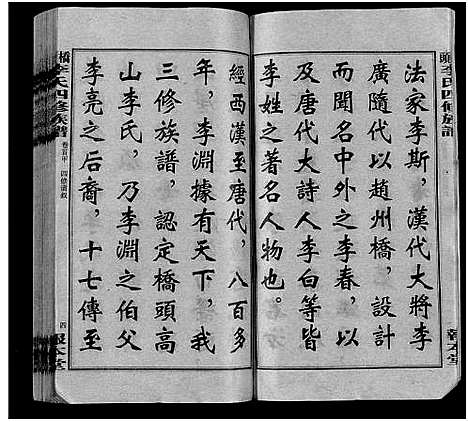 法家李斯，漢代大將李
廣隨代以趙州橋，設計
而聞名中外之李春，以
及唐代大詩人李白等皆
李姓之著名人物也。
經西漢至唐代，八百多
年，李淵據有天下，我
三修族譜，認定橋頭高
山李氏，乃李淵之伯父
李亮之后裔，十七傳至
李氏四修族譜
報本堂
橋頭李氏四修族譜
卷首甲
四修
四
報本堂